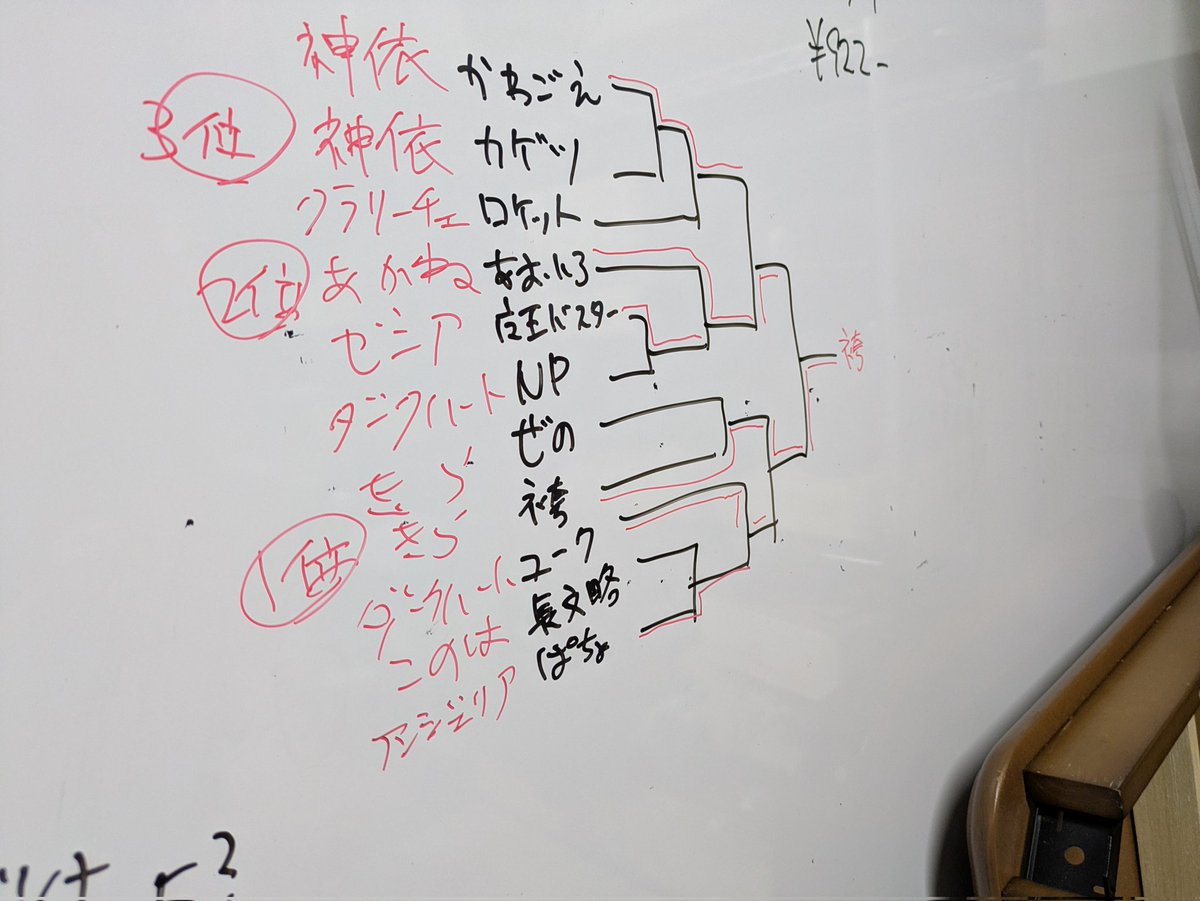 ¥922-
神依 かわごえ
3位 神依 カゲツ
クラリーチェ ロケット
2位 あかね あおいろ
ゼニア 店王バスター
ダンクハート NP
きら ぜの
きら 袴
1位 ダンクハート ユーク
このは 長文略
アンジェリア ぱちょ
袴
?